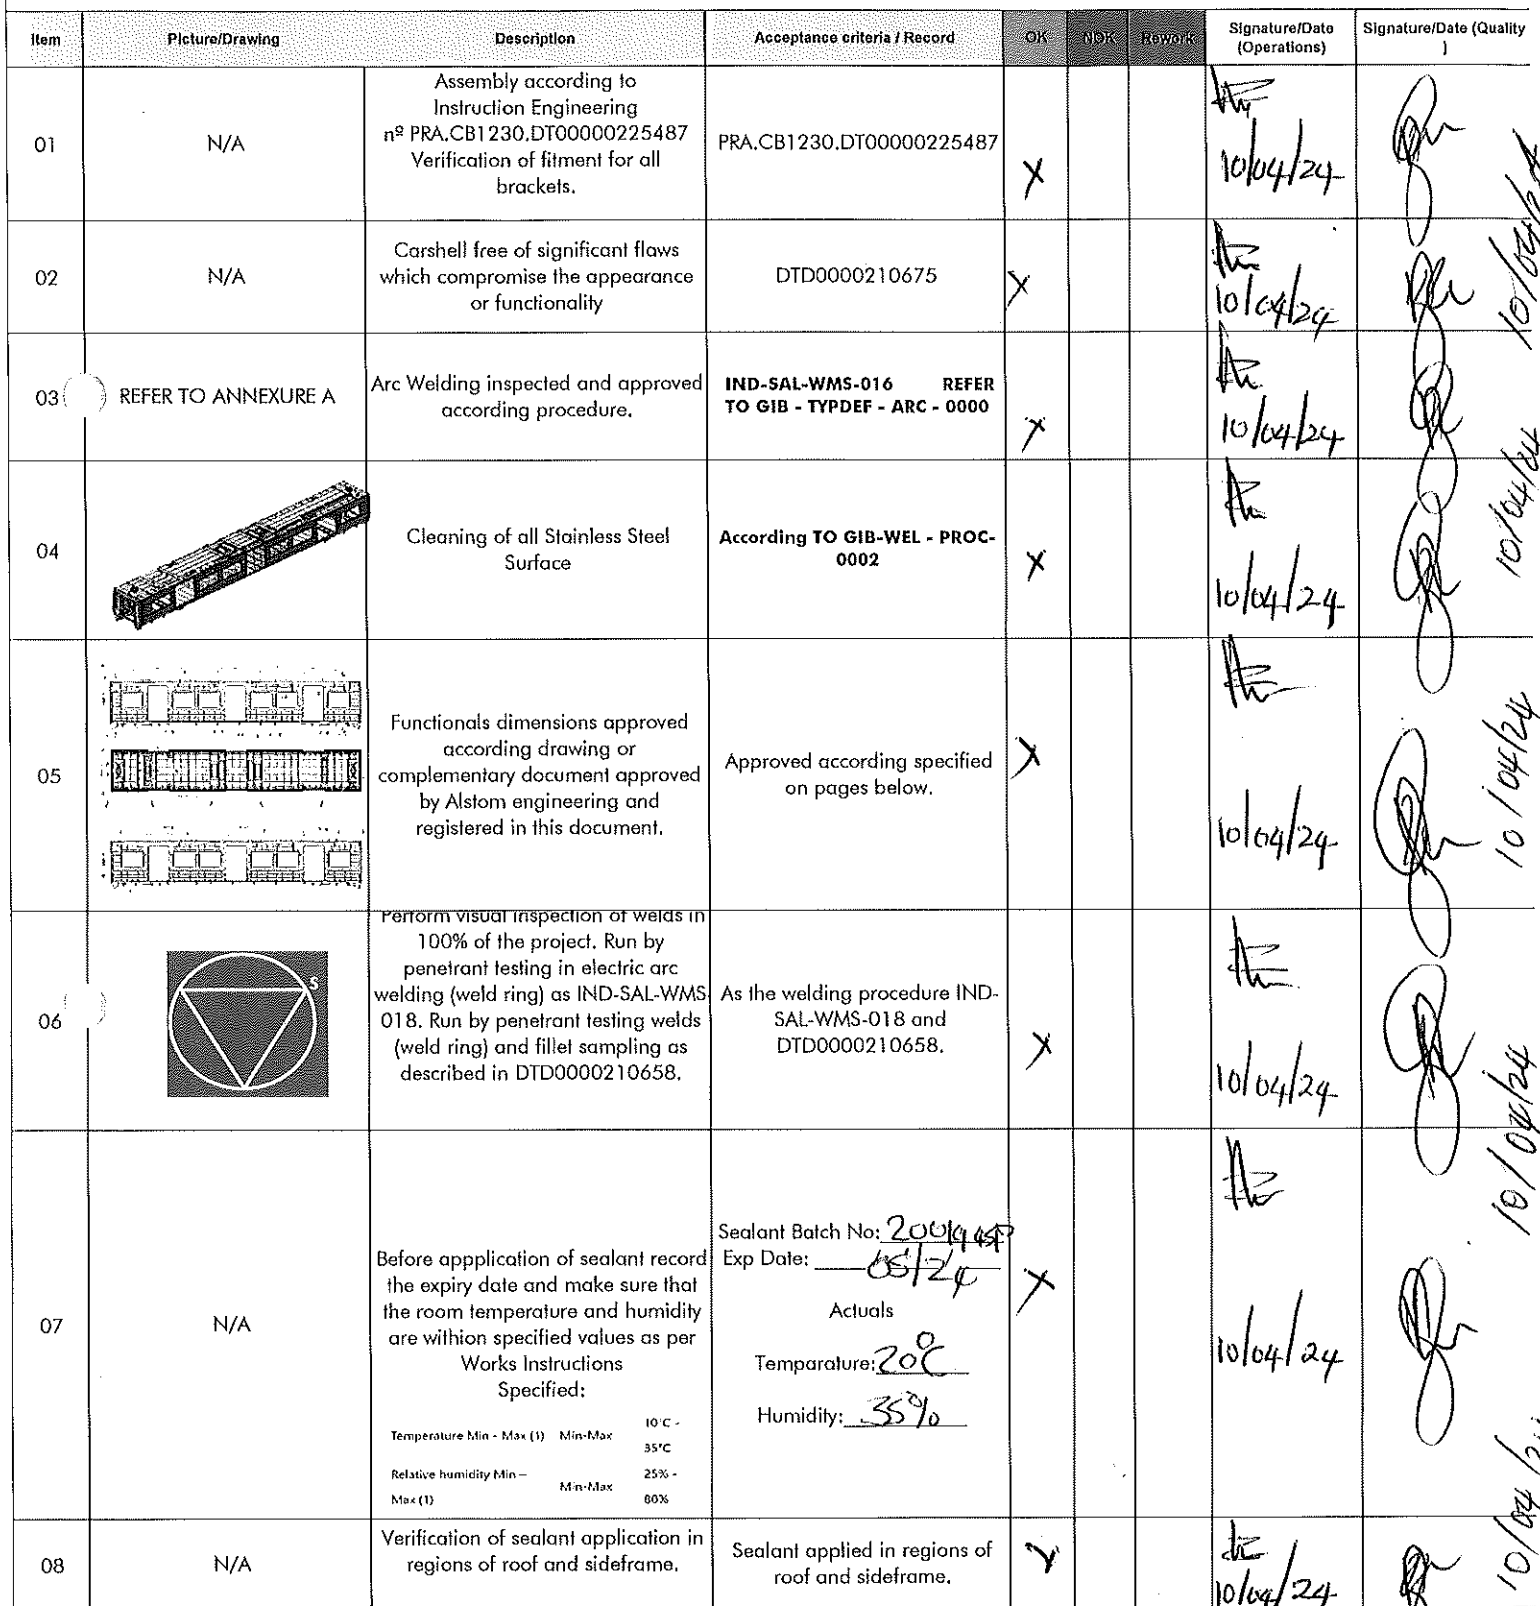 Item Picture/Drawing Description Acceptance criteria / Record OK NOK Rework Signature/Date (Operations) Signature/Date (Quality )
01
N/A
Assembly according to
Instruction Engineering
nº PRA.CB1230.DT00000225487
Verification of fitment for all
brackets.
PRA.CB1230.DT00000225487
X
10/04/24
02
N/A
Carshell free of significant flaws
which compromise the appearance
or functionality
DTD0000210675
X
10/04/24
03
REFER TO ANNEXURE A
Arc Welding inspected and approved
according procedure.
IND-SAL-WMS-016 REFER
TO GIB - TYPDEF - ARC - 0000
X
10/04/24
10/04/24
04
Cleaning of all Stainless Steel
Surface
According TO GIB-WEL - PROC-
0002
X
10/04/24
05
Functionals dimensions approved
according drawing or
complementary document approved
by Alstom engineering and
registered in this document.
Approved according specified
on pages below.
X
10/04/24
10/04/24
06
S
Perform visual inspection of welds in
100% of the project. Run by
penetrant testing in electric arc
welding (weld ring) as IND-SAL-WMS
018. Run by penetrant testing welds
(weld ring) and fillet sampling as
described in DTD0000210658.
As the welding procedure IND-
SAL-WMS-018 and
DTD0000210658.
X
10/04/24
10/04/24
07
N/A
Before appplication of sealant record
the expiry date and make sure that
the room temperature and humidity
are withion specified values as per
Works Instructions
Specified:
Temperature Min - Max (1) Min-Max 10°C -
35°C
Relative humidity Min –
Max (1) Min-Max 25% -
80%
Sealant Batch No:
Exp Date: 05/24
Actuals
Temparature: 20°C
Humidity: 35%
X
10/04/24
08
N/A
Verification of sealant application in
regions of roof and sideframe.
Sealant applied in regions of
roof and sideframe.
X
10/04/24